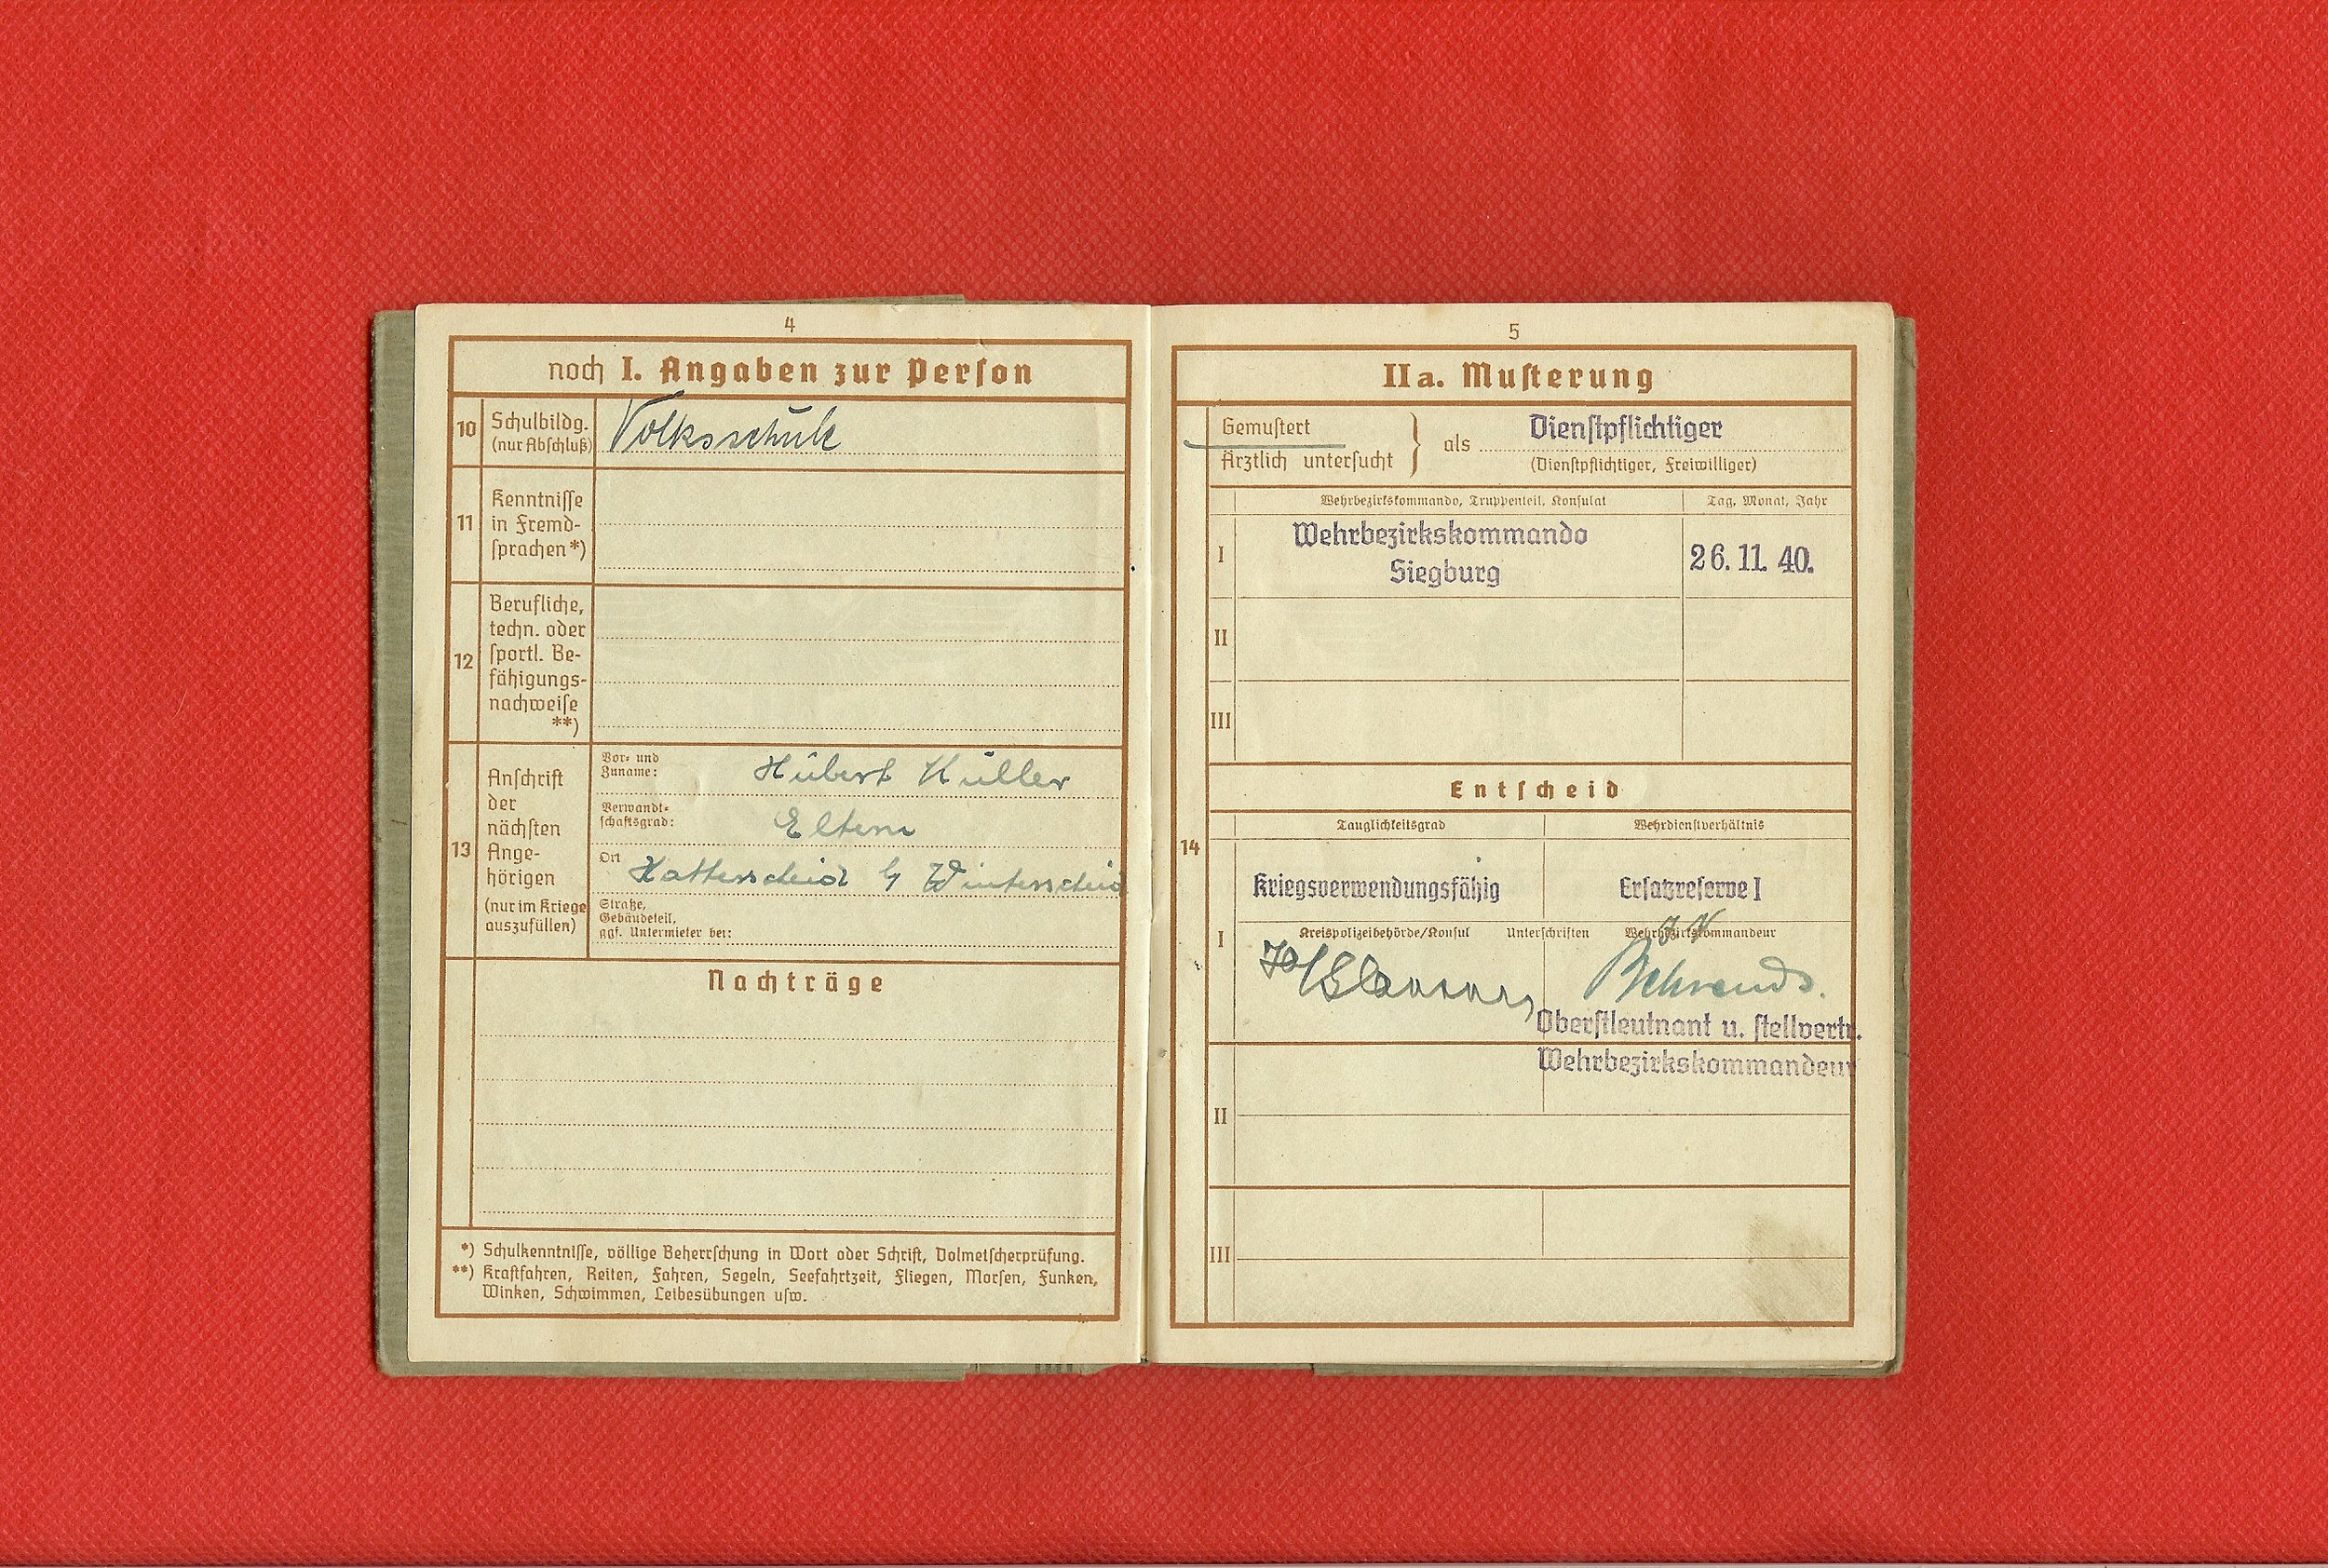 4
noch I. Angaben zur Perſon
10 Schulbildg. (nur Abſchluß)
Volksschule
11 Kenntniſſe in Fremd- ſprachen *)
12 Berufliche, techn. oder ſportl. Be- fähigungs- nachweiſe **)
13 Anſchrift der nächſten Ange- hörigen (nur im Kriege auszufüllen)
Vor- und Zuname: Hubert
Verwandt- ſchaftsgrad: Eltern
Ort Hatterscheid b/ Winterscheid
Straße, Gebäudeteil, ggf. Untermieter bei:
Nachträge
*) Schulkenntniſſe, völlige Beherrſchung in Wort oder Schrift, Dolmetſcherprüfung.
**) Kraftfahren, Reiten, Fahren, Segeln, Seefahrtzeit, Fliegen, Morſen, Funken,
Winken, Schwimmen, Leibesübungen uſw.
5
IIa. Muſterung
Gemuſtert
Ärztlich unterſucht
als Dienſtpflichtiger
(Dienſtpflichtiger, Freiwilliger)
Wehrbezirkskommando, Truppenteil, Konſulat
Tag, Monat, Jahr
I Wehrbezirkskommando
Siegburg
26. 11. 40.
II
III
Entſcheid
14
Tauglichkeitsgrad
Wehrdienſtverhältnis
Kriegsverwendungsfähig
Erſatzreſerve I
I
Kreispolizeibehörde/Konſul
Unterſchriften
Wehrbezirkskommandeur
Behrends.
Oberſtleutnant u. ſtellvertr.
Wehrbezirkskommandeur
II
III